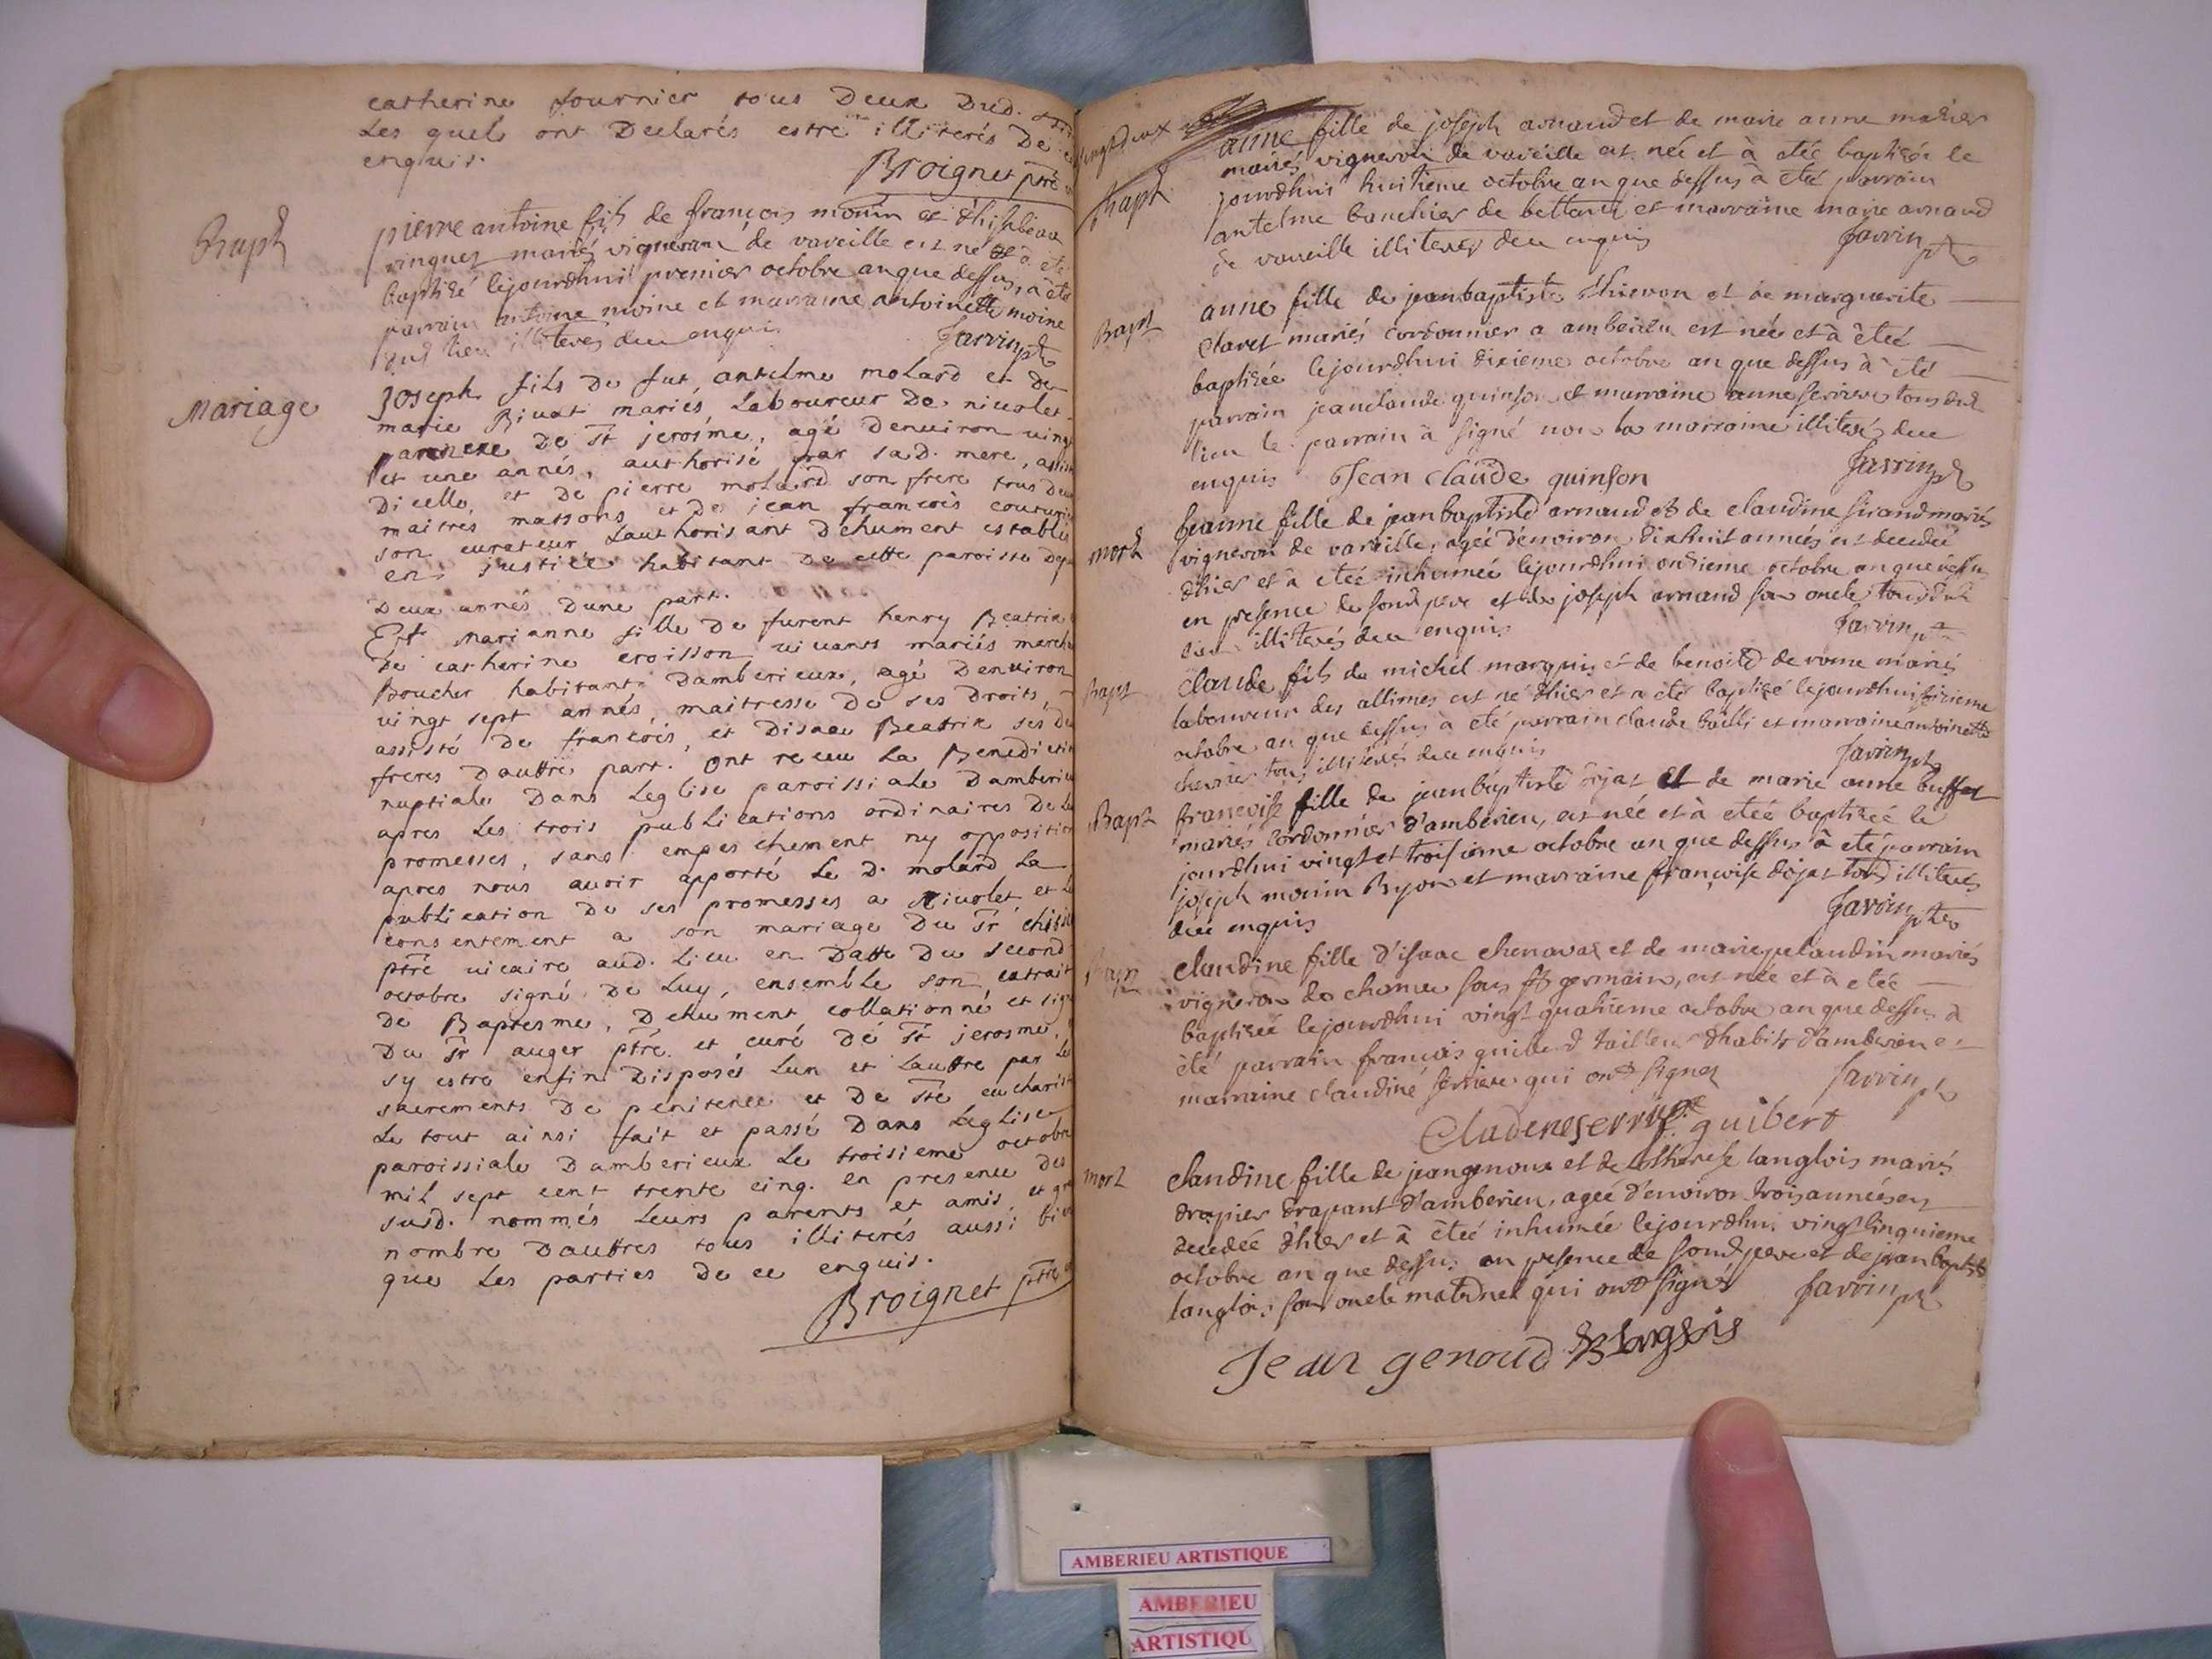 catherine fournier tous Deux Dud.
Les quels ont Declarés estre illiterés De
enquis.
Broignet ptre
Bapt
pierre antoine fils de françois monin et d'hisabeau
vinguet mariés vigneron de vareille est né et à eté
baptisé lejourdhui premier octobre an que dessus, a eté
parrain antoine moine et marraine antoinette moine
dud lieu illiterés deu enquis
Jarrin ptre
Mariage
Joseph fils De fut antelme molard et De
marie Biuat mariés Laboureur De niuolet
annexe De St jerosme, agé Denuiron uingt
et une annés, authorisé par sad. mere, assis
Dicelle, et De pierre molard son frere tous Deux
maitres massons et De jean francois couturi
son curateur Lauthorisant Dehument establi
en justice habitant De cette paroisse Dep
Deux annés Dune part.
Et marianne fille De furent henry Beatrix
De catherine croisson uiuants mariés march
Boucher habitants Damberieux, agé Denuiron
uingt sept annés, maitresse De ses Droits,
assisté De francois, et Disaac Beatrix ses De
freres Dauttre part. ont receu La Benedicti
nuptiale Dans Leglise paroissiale Damberieu
apres Les trois publications ordinaires De Le
promesses, sans empeschement ny oppositio
apres nous auoir apporté Le D. molard La
publication De ses promesses a Niuolet et Le
consentement a son mariage Du Sr
ptre uicaire aud. Lieu en Datte Du second
octobre signé De Luy, ensemble son extrait
De Baptesme, Dehument collationné et sign
Du Sr auger ptre et curé De St jerosme,
sy estre enfin Disposés Lun et Lauttre par Le
sacrements De penitence et De Ste eucharist
Le tout ainsi fait et passé Dans Leglise
paroissiale Damberieux Le troisieme octobre
mil sept cent trente cinq. en presence Des
susd. nommés Leurs parents et amis, et gr
nombre Dauttres tous illiterés aussi bie
que Les parties De ce enquis.
Broignet ptre
vingt deux
Bapt
anne fille de joseph arnaud et de marie anne
mariés vigneron de vareille est née et à eteé baptisée le
jourdhui huitieme octobre an que dessus à eté parrain
antelme bouchier de bettant et marraine marie arnaud
de vareille illiteres deu enquis
Jarrin ptre
Bapt
anne fille de jeanbaptiste thievon et de marguerite
claret mariés cordonnier a amberieu est née et à êteé
baptisée lejourdhui dixieme octobre an que dessus à été
parrain jeanclaude quinson et marraine anne serriere tous dud
lieu le parrain à signé non la marraine illiteré deu
enquis Jean claude quinson
Jarrin ptre
mort
Jeanne fille de jeanbaptiste arnaud et de claudine sirand mariés
vigneron de vareille, ageé d'environ dixhuit années est decedée
d'hier et à eteé inhumeé lejourdhui onzieme octobre an que dessus
en presence de sond pere et de joseph arnaud son oncle tous dud
lieu illiterés deu enquis
Jarrin ptre
Bapt
claude fils de michel marquis et de benoite derome mariés
laboureur des allimes est né d'hier et a eté baptisé lejourdhui
octobre an que dessus à eté parrain claude bailli et marraine antoinette
chervier tous illiterés deu enquis
Jarrin ptre
Bapt
francoise fille de jeanbaptiste dijat et de marie anne buffet
mariés cordonnier d'amberieu, est née et à eteé baptiseé le
jourdhui vingt et troisieme octobre an que dessus à eté parrain
joseph monin Byon et marraine françoise dijat tous illiterés
deu enquis
Jarrin ptre
Bapt
claudine fille d'isaac chenavas et de marie pelaudin mariés
vigneron de chomeu sous St germain, est née et à eteé
baptiseé lejourdhui vingt quatrieme octobre an que dessus à
été parrain françois guibert tailleur d'habits d'amberieu et
marraine claudine serriere qui ont signez
Jarrin ptre
Cladeneserriere guibert
mort
claudine fille de jeangenoux et de therese langlois mariés
drapier drapant d'amberieu, ageé d'environ trois années est
decedeé d'hier et à êteé inhumée lejourdhui vingt cinquieme
octobre an que dessus en presence de sond pere et de jean baptiste
langlois son oncle maternel qui ont signés
Jarrin ptre
Jean genoud JB Langlois
AMBERIEU ARTISTIQUE
AMBERIEU
ARTISTIQU